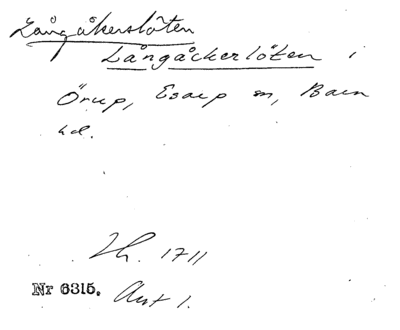 Långåkerslöten
Långåckerlöten i
Örup, Esarp sn, Bara
hd.
Lh. 1711
Nr 6315. Avt 1.